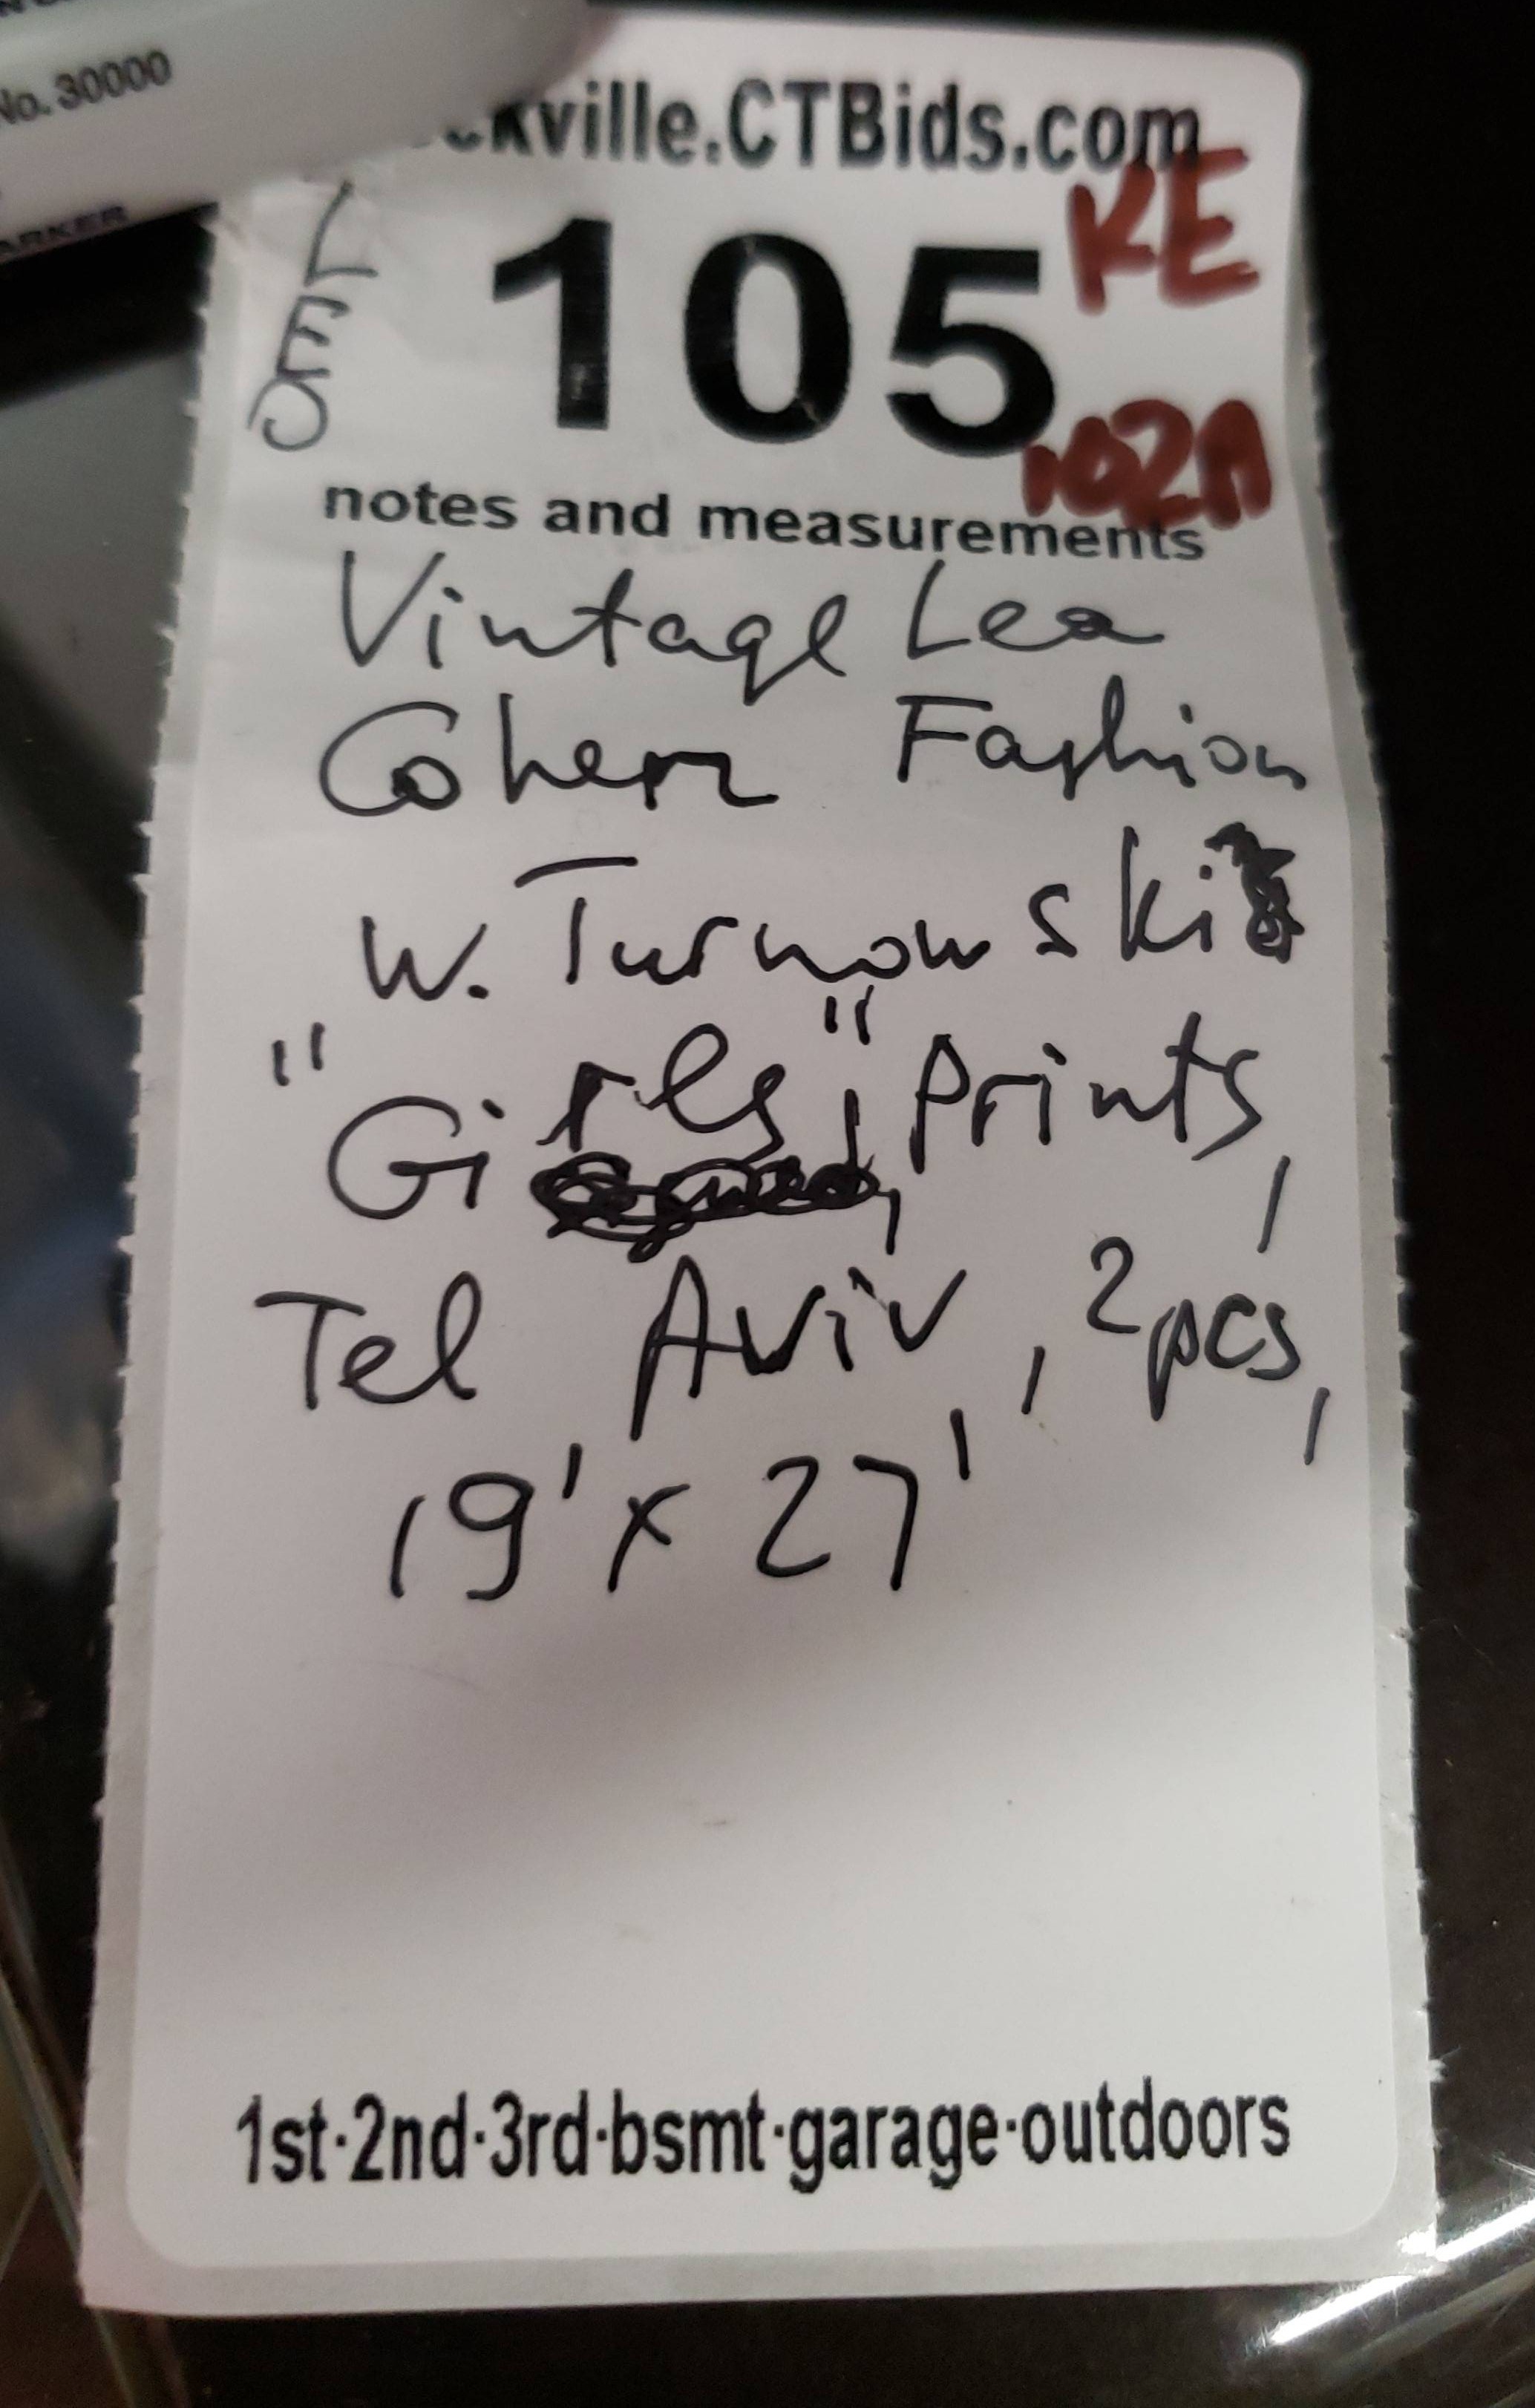 No. 30000
ARKER
ckville.CTBids.com
KE
LES
105
102A
notes and measurements
Vintage Lea
Cohen Fashion
W. Turnowski
"Girls", Prints,
Tel Aviv, 2pcs,
19' x 27'
1st·2nd·3rd·bsmt·garage·outdoors